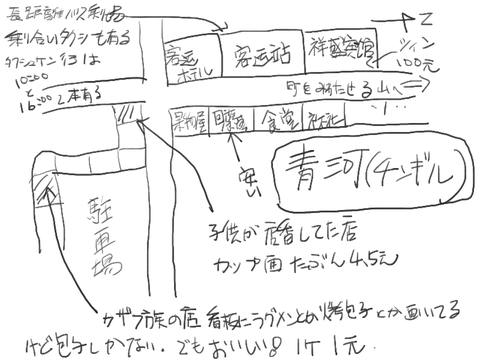 長距離バス乗場
乗り合いタクシもある
タクシュケン行は
10:00
と
16:00 2本有る
客运
ホテル
客运站
祥盛宾館
ツイン
100元
N
町をみわたせる山へ
果物屋
回族
食堂
安い
青河(チンギル)
駐車場
子供が店番してた店
カップ面 たぶん 4.5元
カザフ族の店 看板にラグメンとか烤包子とか画いてる
けど包子しかない。でもおいしい 1ケ1元